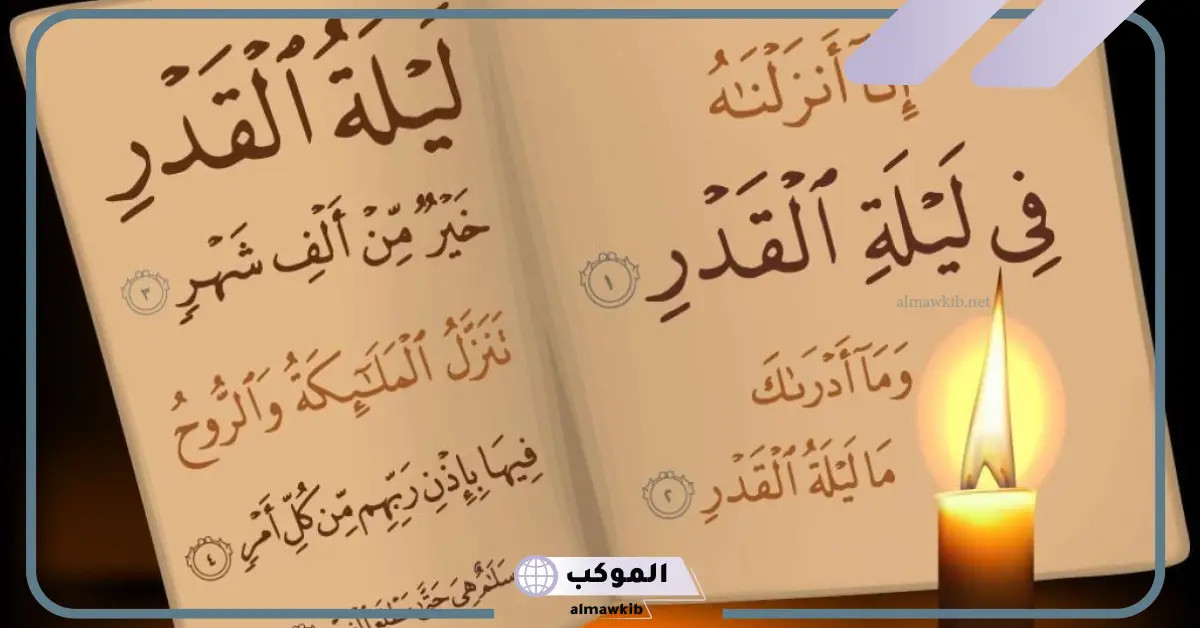 إِنَّآ أَنزَلۡنَٰهُ
فِي لَيۡلَةِ ٱلۡقَدۡرِ ١
وَمَآ أَدۡرَىٰكَ
مَا لَيۡلَةُ ٱلۡقَدۡرِ ٢
لَيۡلَةُ ٱلۡقَدۡرِ
خَيۡرٞ مِّنۡ أَلۡفِ شَهۡرٖ ٣
تَنَزَّلُ ٱلۡمَلَٰٓئِكَةُ وَٱلرُّوحُ
فِيهَا بِإِذۡنِ رَبِّهِم مِّن كُلِّ أَمۡرٖ ٤
سَلَٰمٌ هِيَ حَتَّىٰ
almawkib.net
الموكب
almawkib